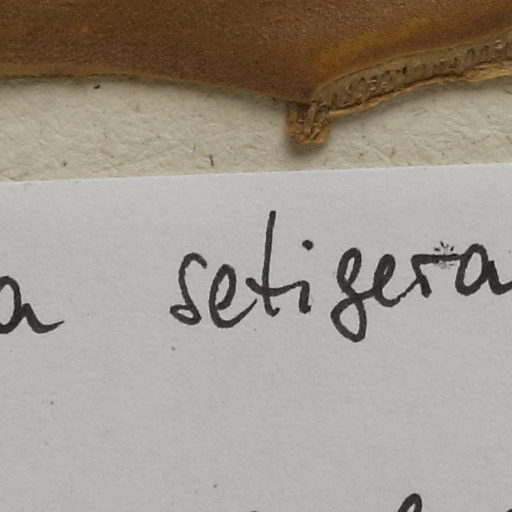 a setigera